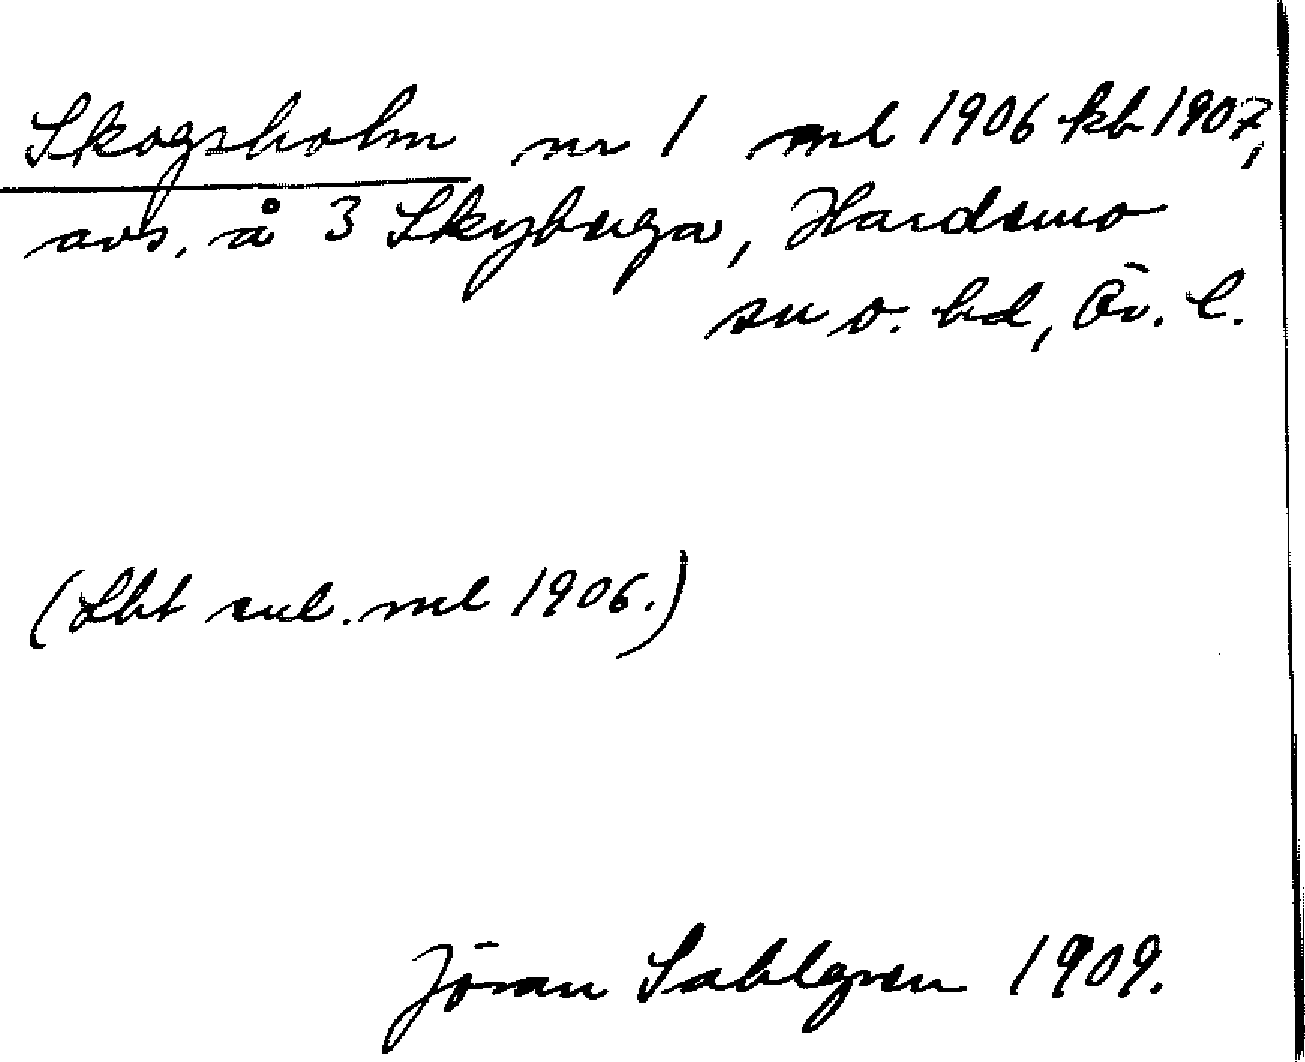 Skogsholm nr 1 ml 1906 kb 1907,
avs. å 3 Skyberga, Hardemo
sn o. hd, Ör. l.
(Lht enl. ml 1906.)
Jöran Sahlgren 1909.